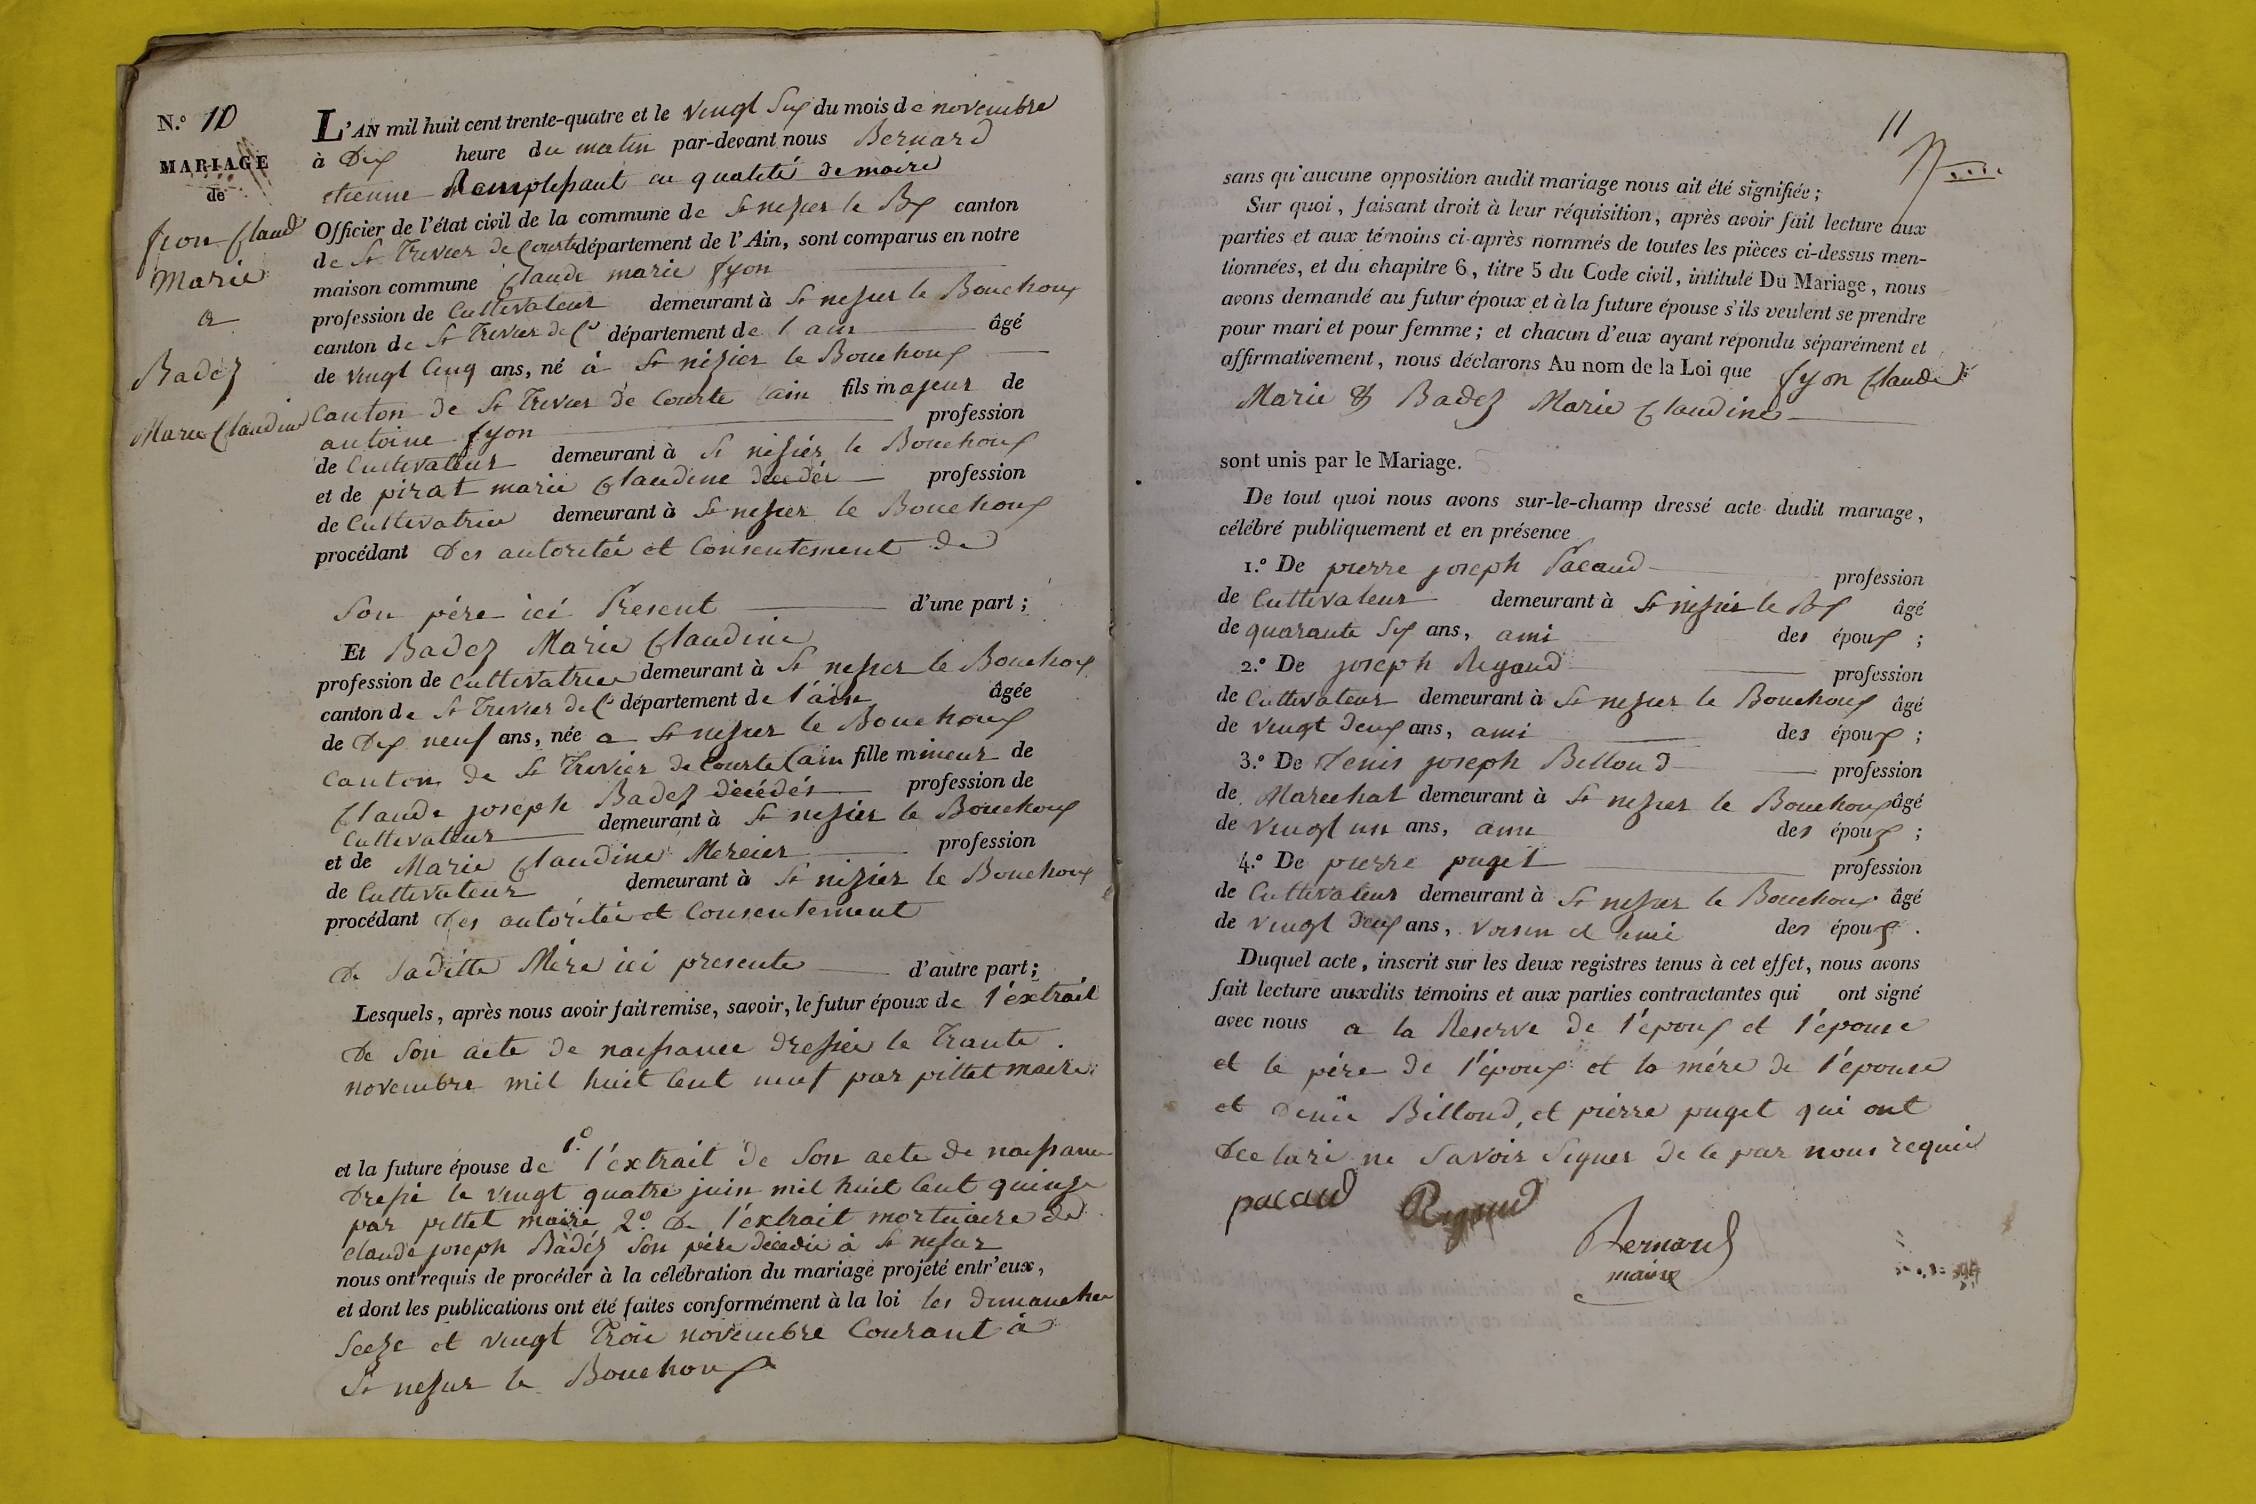 N.o 10
MARIAGE
de
fion Claud
Marie
a
Badez
Marie Claudine
L'AN mil huit cent trente-quatre et le vingt Six du mois de novembre
à Dix heure du matin par-devant nous Bernard
etienne Remplissant en qualité de maire
Officier de l'état civil de la commune de St nizier le Bx canton
de St Trivier de Courtes département de l'Ain, sont comparus en notre
maison commune Claude marie fyon
profession de Cultivateur demeurant à St nizier le Bouchoux
canton de St Trivier de Cs département de l'ain âgé
de vingt Cinq ans, né à St nizier le Bouchoux
Canton de St Trivier de Courte l'ain fils majeur de
antoine fyon profession
de Cultivateur demeurant à St nizier le Bouchoux
et de pirat marie Claudine décédée profession
de Cultivatrice demeurant à St nizier le Bouchoux
procédant Des autorité et Consentement de
Son père ici Present d'une part;
Et Badez Marie Claudine
profession de Cultivatrice demeurant à St nizier le Bouchoux
canton de St Trivier de Cs département de l'ain âgée
de Dix neuf ans, née a St nizier le Bouchoux
Canton de St Trivier de Courte l'ain fille mineur de
Claude joseph Badez décédés profession de
Cultivateur demeurant à St nizier le Bouchoux
et de Marie Claudine Mercier profession
de Cultivateur demeurant à St nizier le Bouchoux
procédant Des autorité et Consentement
De Saditte Mère ici presente d'autre part;
Lesquels, après nous avoir fait remise, savoir, le futur époux de l'extrait
De Son acte de naissance dressée le Trante
novembre mil huit Cent neuf par pittet maire
et la future épouse de 1o. l'extrait de Son acte de naissance
Dressé le vingt quatre juin mil huit Cent quinze
par pittet maire 2o. De l'extrait mortuaire de
Claude joseph Badéz Son père décédé à St nizier
nous ont requis de procéder à la célébration du mariage projeté entr'eux,
et dont les publications ont été faites conformément à la loi les dimanche
Seize et vingt Trois novembre Courant à
St nizier le Bouchoux
11
sans qu'aucune opposition audit mariage nous ait été signifiée;
Sur quoi, faisant droit à leur réquisition, après avoir fait lecture aux
parties et aux témoins ci-après nommés de toutes les pièces ci-dessus men-
tionnées, et du chapitre 6, titre 5 du Code civil, intitulé Du Mariage, nous
avons demandé au futur époux et à la future épouse s'ils veulent se prendre
pour mari et pour femme; et chacun d'eux ayant répondu séparément et
affirmativement, nous déclarons Au nom de la Loi que fyon Claude
Marie & Badez Marie Claudine
sont unis par le Mariage.
De tout quoi nous avons sur-le-champ dressé acte dudit mariage,
célébré publiquement et en présence
1.o De pierre joseph Pacaud profession
de Cultivateur demeurant à St nizier le Bx âgé
de quarante Six ans, ami des époux;
2.o De joseph Rigaud profession
de Cultivateur demeurant à St nizier le Bouchoux âgé
de vingt Deux ans, ami des époux;
3.o De Denis joseph Billoud profession
de Marechal demeurant à St nizier le Bouchoux âgé
de vingt un ans, ami des époux;
4.o De pierre puget profession
de Cultivateur demeurant à St nizier le Bouchoux âgé
de vingt Deux ans, voisin et ami des époux.
Duquel acte, inscrit sur les deux registres tenus à cet effet, nous avons
fait lecture auxdits témoins et aux parties contractantes qui ont signé
avec nous a la Reserve de l'époux et l'épouse
et le père de l'époux et la mére de l'épouse
et Denie Billoud, et pierre puget qui ont
Declaré ne Savoir Signer de le par nous requie
pacaud Rigaud
Bernard
maire